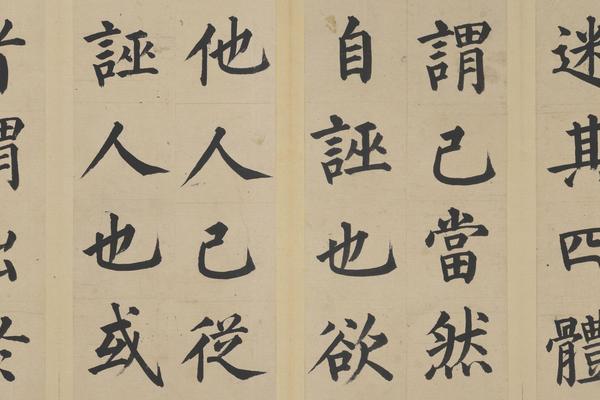 迷其四體
謂己當然
自誣也欲
他人己従
誣人也或
者謂出於